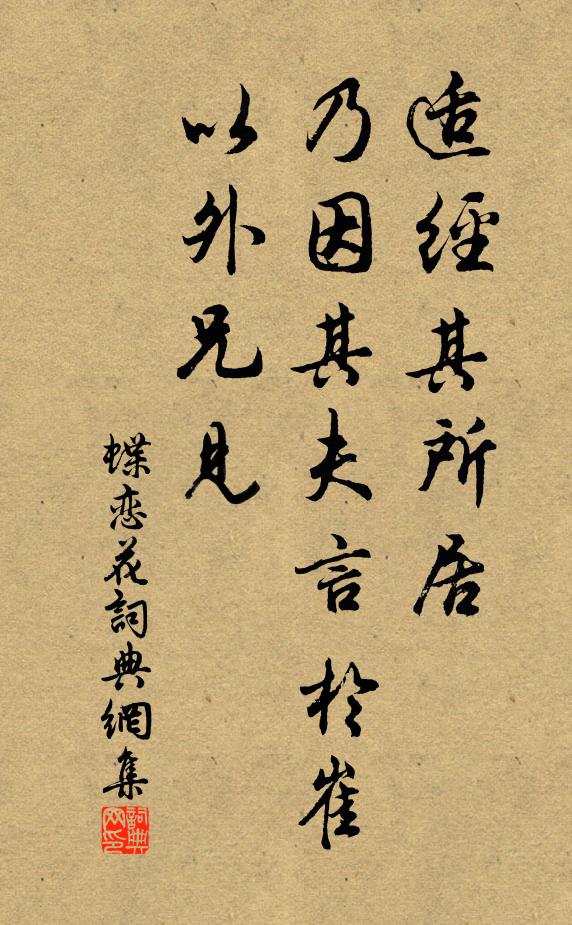 适經其所居
乃因其夫言於崔
以外兄見
蝶恋花詞典網集
詞典
网印